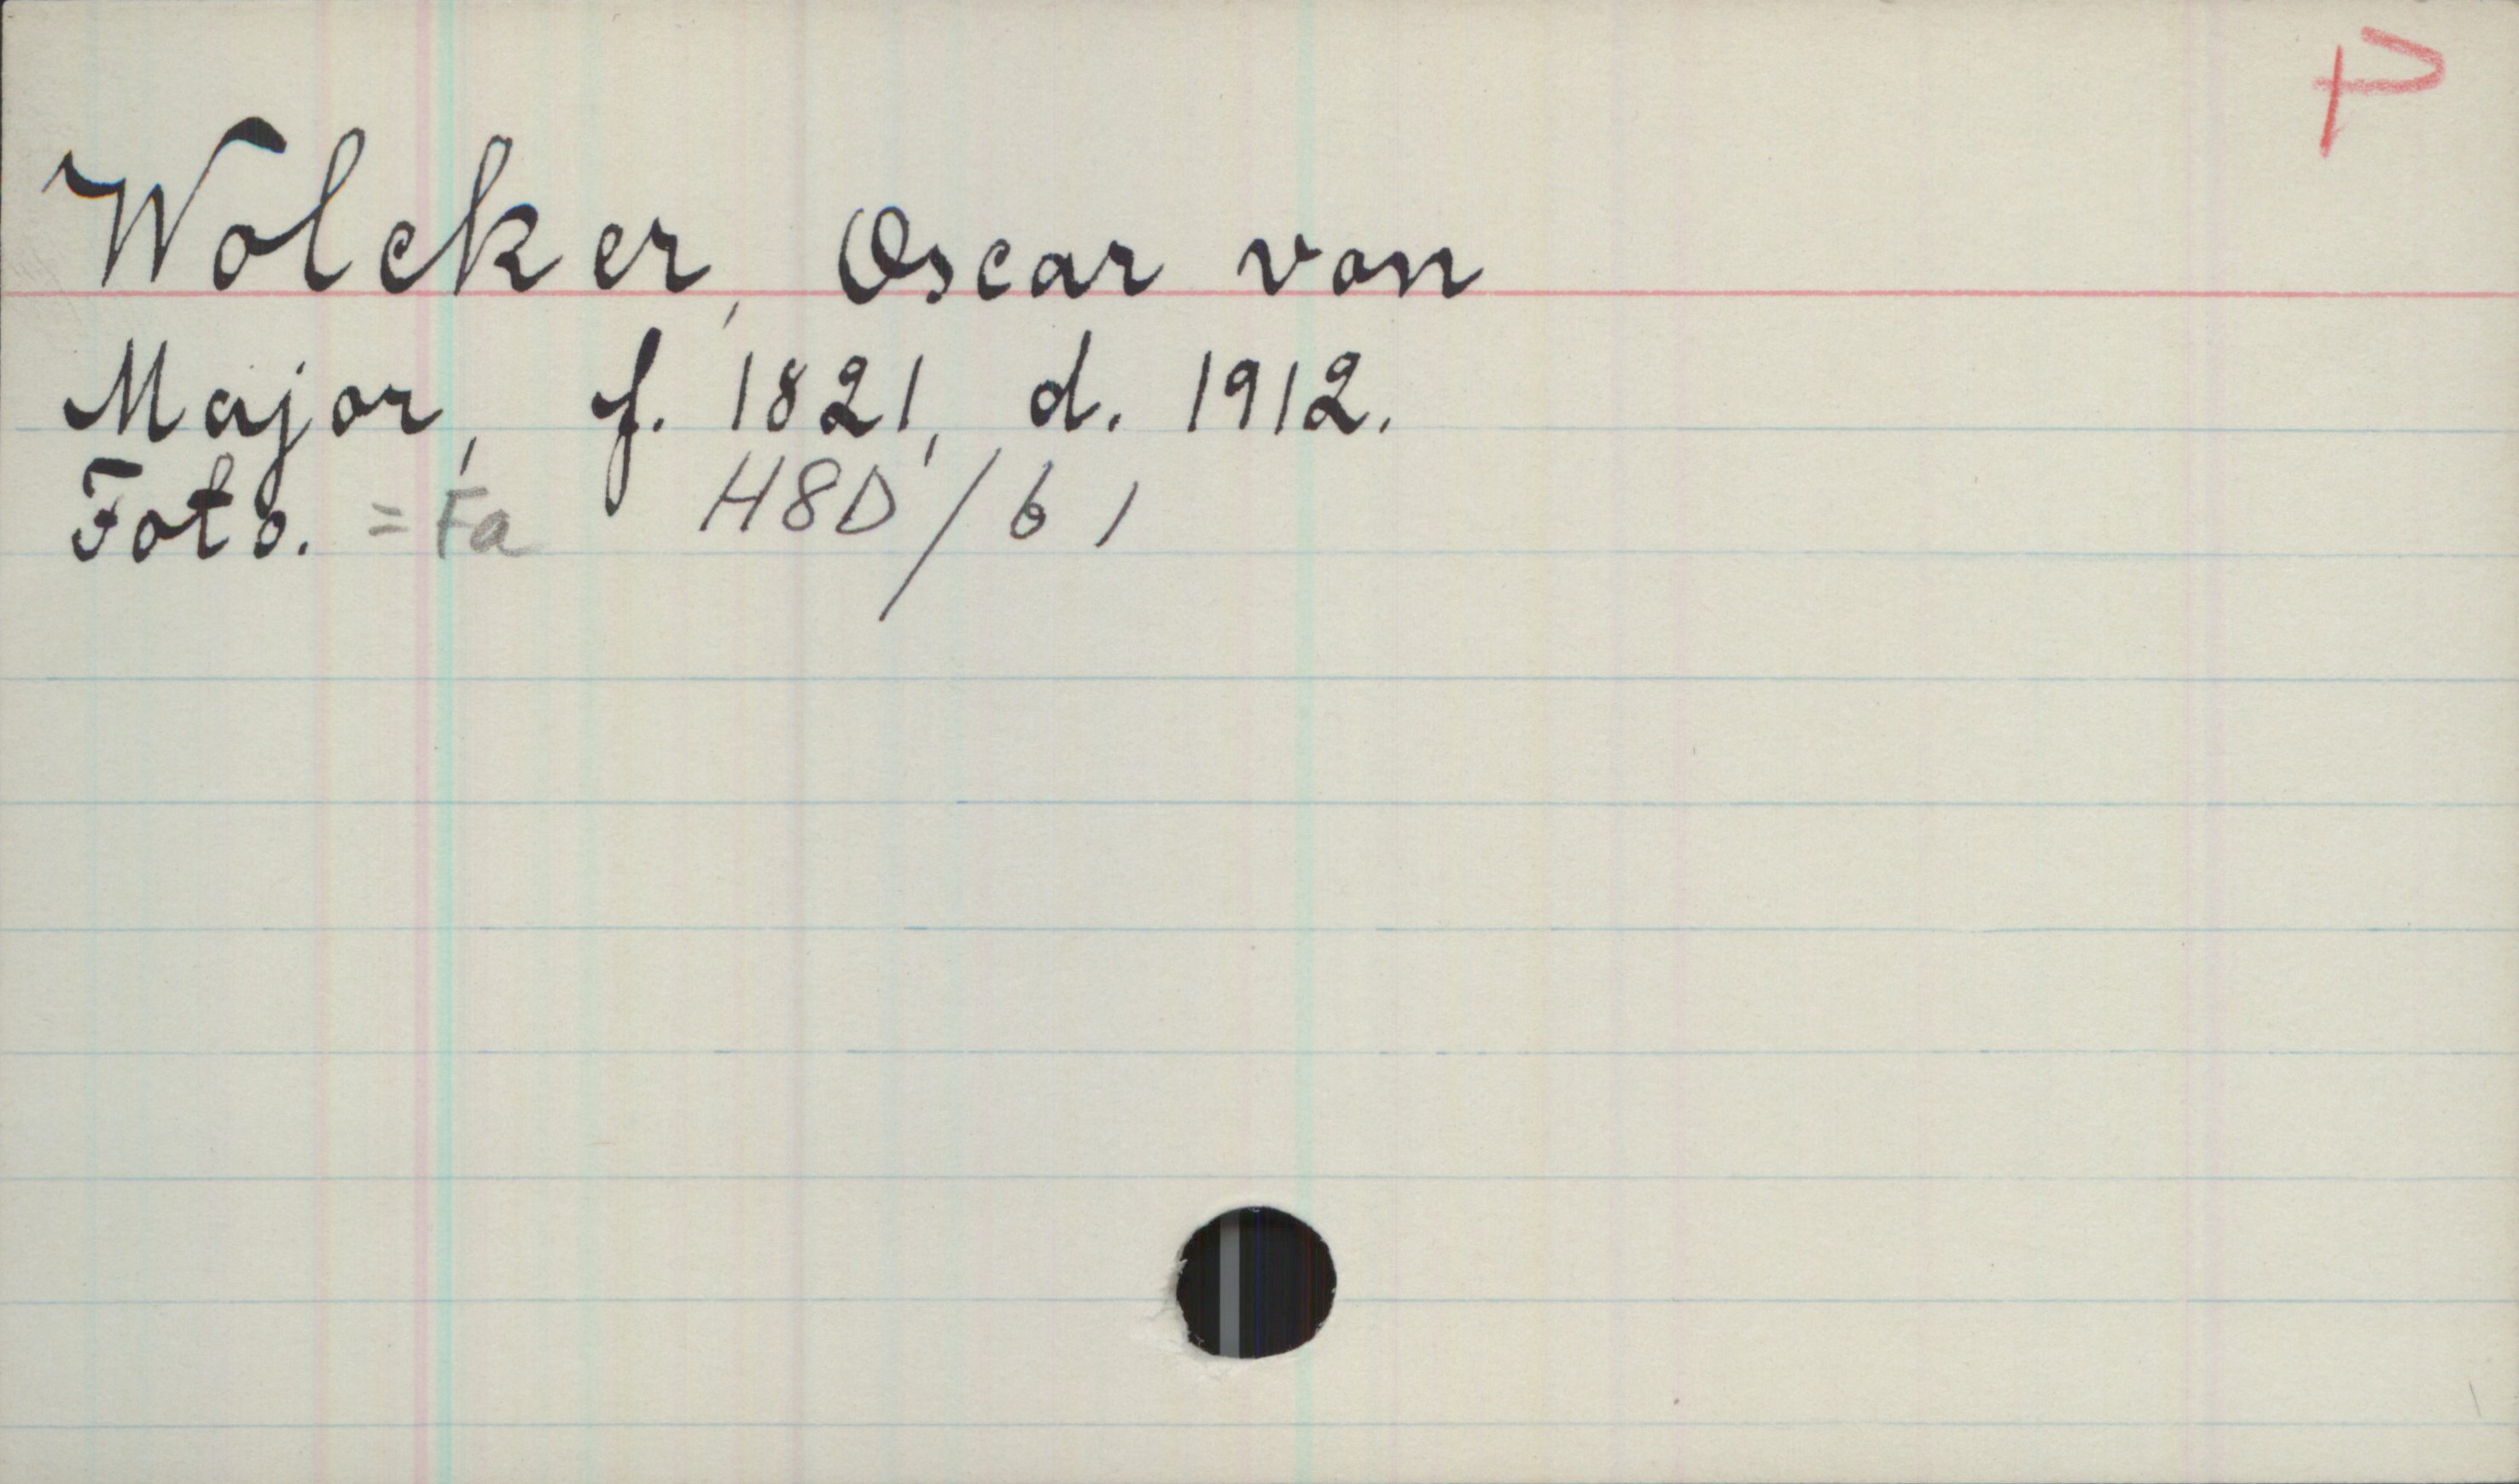 P
Wolcker, Oscar von
Major, f. 1821, d. 1912.
Foto. = Fa H8D/61